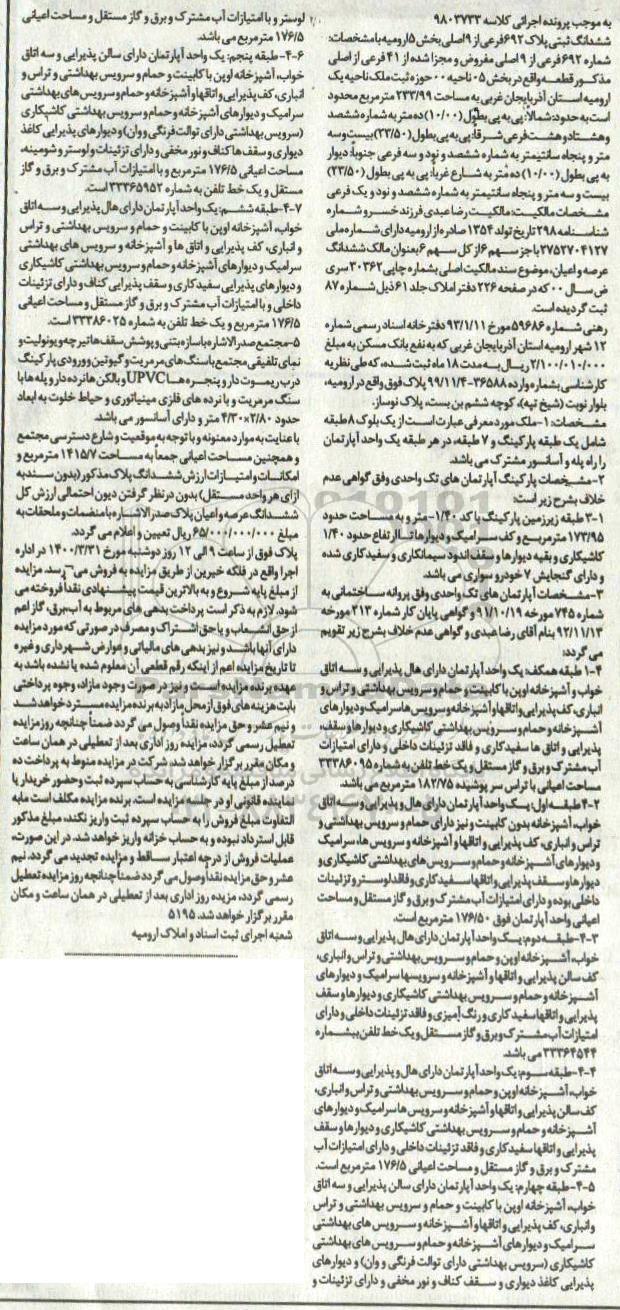 به موجب پرونده اجرائی کلاسه ۹۸۰۳۷۳۳
ششدانگ ثبتی پلاک ۶۹۲فرعی از ۹اصلی بخش ۵ارومیه با مشخصات:
شماره ۶۹۲ فرعی از ۹ اصلی مفروض و مجزا شده از ۴۱ فرعی از اصلی
مذکور قطعه واقع در بخش ۰۵ ناحیه ۰۰ حوزه ثبت ملک ناحیه یک
ارومیه استان آذربایجان غربی به مساحت ۲۳۳/۹۹ مترمربع محدود
است به حدود: شمالاً: پی به پی بطول (۱۰/۰۰) ده متر به شماره ششصد
و هشتاد و هشت فرعی شرقاً: پی به پی بطول (۲۳/۵۰) بیست و سه
متر و پنجاه سانتیمتر به شماره ششصد و نود و سه فرعی جنوباً: دیوار
به پی بطول (۱۰/۰۰) ده متر به شارع غرباً: پی به پی بطول (۲۳/۵۰)
بیست و سه متر و پنجاه سانتیمتر به شماره ششصد و نود و یک فرعی
مشخصات مالکیت: مالکیت رضا عبدی فرزند خسرو شماره
شناسنامه ۲۹۸ تاریخ تولد ۱۳۵۴ صادره از ارومیه دارای شماره ملی
۲۷۵۲۷۰۴۱۲۷ با جز سهم ۶ از کل سهم ۶ بعنوان مالک ششدانگ
عرصه و اعیان، موضوع سند مالکیت اصلی بشماره چاپی ۳۰۳۶۲ سری
ض سال ۰۰ که در صفحه ۲۲۶ دفتر املاک جلد ۶۱ ذیل شماره ۸۷
ثبت گردیده است.
رهنی شماره ۵۹۶۸۶ مورخ ۹۳/۱/۱۱ دفترخانه اسناد رسمی شماره
۱۲ شهر ارومیه استان آذربایجان غربی که به نفع بانک مسکن به مبلغ
۲/۱۰۰/۰۱۰/۰۰۰ ریال به مدت ۱۸ ماه ثبت شده، که طی نظریه
کارشناسی بشماره وارده ۳۶۵۸۸-۹۹/۱۱/۴ پلاک فوق واقع در ارومیه،
بلوار نوبت (شیخ تپه)، کوچه ششم بن بست، پلاک نوساز.
مشخصات: ۱-ملک مورد معرفی عبارت است از یک بلوک ۸ طبقه
شامل یک طبقه پارکینگ و ۷ طبقه، در هر طبقه یک واحد آپارتمان
را راه پله و آسانسور مشترک می باشد.
۲-مشخصات پارکینگ آپارتمان های تک واحدی وفق گواهی عدم
خلاف بشرح زیر است:
۳-۱ طبقه زیرزمین پارکینگ با کد ۱/۴۰-متر و به مساحت حدود
۱۷۳/۹۵ مترمربع و کف سرامیک و دیوارها تا ارتفاع حدود ۱/۴۰
کاشیکاری و بقیه دیوارها و سقف اندود سیمانکاری و سفیدکاری شده
و دارای گنجایش ۷ خودرو سواری می باشد.
۳-مشخصات آپارتمان های تک واحدی وفق پروانه ساختمانی به
شماره ۷۴۵ مورخه ۹۱/۱۰/۱۹ و گواهی پایان کار شماره ۲۱۳ مورخه
۹۲/۱۱/۱۳ بنام آقای رضا عبدی و گواهی عدم خلاف بشرح زیر تقویم
می گردد:
۴-۱ طبقه همکف: یک واحد آپارتمان دارای هال، پذیرایی و سه اتاق
خواب و آشپزخانه اوپن با کابینت و حمام و سرویس بهداشتی و تراس و
انباری، کف پذیرایی و اتاقها و آشپزخانه و سرویس ها سرامیک و دیوارهای
آشپزخانه و حمام و سرویس بهداشتی کاشیکاری و دیوارها و سقف،
پذیرایی و اتاق ها سفیدکاری و فاقد تزئینات داخلی و دارای امتیازات
آب مشترک و برق و گاز مستقل و یک خط تلفن به شماره ۳۳۳۸۶۰۹۵
مساحت اعیانی با تراس سرپوشیده ۱۸۲/۷۵ مترمربع می باشد.
۴-۲ طبقه اول: یک واحد آپارتمان دارای هال و پذیرایی و سه اتاق
خواب، آشپزخانه بدون کابینت و نیز دارای حمام و سرویس بهداشتی و
تراس و انباری، کف پذیرایی و اتاقها و آشپزخانه و سرویس ها، سرامیک
و دیوارهای آشپزخانه و حمام و سرویس های بهداشتی کاشیکاری و
دیوارها و سقف پذیرایی و اتاقها سفیدکاری و فاقد لوستر و تزئینات
داخلی بوده و دارای امتیازات آب مشترک و برق و گاز مستقل و مساحت
اعیانی واحد آپارتمان فوق ۱۷۶/۵۰ مترمربع است.
۴-۳-طبقه دوم: یک واحد آپارتمان دارای هال، پذیرایی و سه اتاق
خواب، آشپزخانه اوپن و حمام و سرویس بهداشتی و تراس و انباری،
کف سالن پذیرایی و اتاقها و آشپزخانه و سرویسها سرامیک و دیوارهای
آشپزخانه و حمام و سرویس بهداشتی کاشیکاری و دیوارها و سقف
پذیرایی و اتاقها سفیدکاری و رنگ آمیزی و فاقد تزئینات داخلی و دارای
امتیازات آب مشترک و برق و گاز مستقل و یک خط تلفن بشماره
۳۳۳۶۴۵۴۴ می باشد.
۴-۴-طبقه سوم: یک واحد آپارتمان دارای هال و پذیرایی و سه اتاق
خواب، آشپزخانه اوپن و حمام و سرویس بهداشتی و تراس و انباری،
کف سالن پذیرایی و اتاقها و آشپزخانه و سرویس ها سرامیک و دیوارهای
آشپزخانه و حمام و سرویس بهداشتی کاشیکاری و دیوارها و سقف
پذیرایی و اتاقها سفیدکاری و فاقد تزئینات داخلی و دارای امتیازات آب
مشترک و برق و گاز مستقل و مساحت اعیانی ۱۷۶/۵ مترمربع است.
۴-۵-طبقه چهارم: یک واحد آپارتمان دارای سالن پذیرایی و سه اتاق
خواب، آشپزخانه اوپن با کابینت و حمام و سرویس بهداشتی و تراس
و انباری، کف پذیرایی و اتاقها و آشپزخانه و سرویس های بهداشتی
سرامیک و دیوارهای آشپزخانه و حمام و سرویس های بهداشتی
کاشیکاری (سرویس بهداشتی دارای توالت فرنگی و وان) و دیوارهای
پذیرایی کاغذ دیواری و سقف کناف و نور مخفی و دارای تزئینات و
لوستر و با امتیازات آب مشترک و برق و گاز مستقل و مساحت اعیانی
۱۷۶/۵ مترمربع می باشد.
۴-۶-طبقه پنجم: یک واحد آپارتمان دارای سالن پذیرایی و سه اتاق
خواب، آشپزخانه اوپن با کابینت و حمام و سرویس بهداشتی و تراس و
انباری، کف پذیرایی و اتاقها و آشپزخانه و حمام و سرویس های بهداشتی
سرامیک و دیوارهای آشپزخانه و حمام و سرویس بهداشتی کاشیکاری
(سرویس بهداشتی دارای توالت فرنگی و وان) و دیوارهای پذیرایی کاغذ
دیواری و سقف ها کناف و نور مخفی و دارای تزئینات و لوستر و شومینه،
مساحت اعیانی ۱۷۶/۵ مترمربع و با امتیازات آب مشترک و برق و گاز
مستقل و یک خط تلفن به شماره ۳۳۳۶۵۹۵۲ است.
۴-۷-طبقه ششم: یک واحد آپارتمان دارای هال پذیرایی و سه اتاق
خواب، آشپزخانه اوپن با کابینت و حمام و سرویس بهداشتی و تراس
و انباری، کف پذیرایی و اتاق ها و آشپزخانه و سرویس های بهداشتی
سرامیک و دیوارهای آشپزخانه و حمام و سرویس بهداشتی کاشیکاری
و دیوارهای پذیرایی سفیدکاری و سقف پذیرایی کناف و دارای تزئینات
داخلی و با امتیازات آب مشترک و برق و گاز مستقل و مساحت اعیانی
۱۷۶/۵ مترمربع و یک خط تلفن به شماره ۳۳۳۸۶۰۲۵ است.
۵-مجتمع صدرالاشاره با سازه بتنی و پوشش سقف ها تیرچه و یونولیت و
نمای تلفیقی مجتمع با سنگ های مرمریت و گیوتین و ورودی پارکینگ
درب ریموت دار و پنجره ها UPVC و بالکن ها نرده دار و پله ها با
سنگ مرمریت و با نرده های فلزی مینیاتوری و حیاط خلوت به ابعاد
حدود ۲/۸۰×۴/۳۰ متر و دارای آسانسور می باشد.
با عنایت به موارد معنونه و با توجه به موقعیت و شارع دسترسی مجتمع
و همچنین مساحت اعیانی جمعاً به مساحت ۱۴۱۵/۷ مترمربع و
امکانات و امتیازات ارزش ششدانگ پلاک مذکور (بدون سند به
ازای هر واحد مستقل) بدون در نظر گرفتن دیون احتمالی ارزش کل
ششدانگ عرصه و اعیان پلاک صدرالاشاره با منضمات و ملحقات به
مبلغ ۶۵/۰۰۰/۰۰۰/۰۰۰ ریال تعیین و اعلام می گردد.
پلاک فوق از ساعت ۹ الی ۱۲ روز دوشنبه مورخ ۱۴۰۰/۳/۳۱ در اداره
اجرا واقع در فلکه خیرین از طریق مزایده به فروش می رسد. مزایده
از مبلغ پایه شروع و به بالاترین قیمت پیشنهادی نقداً فروخته می
شود. لازم به ذکر است پرداخت بدهی های مربوط به آب، برق، گاز اعم
از حق انشعاب و یا حق اشتراک و مصرف در صورتی که مورد مزایده
دارای آنها باشد و نیز بدهی های مالیاتی و عوارض شهرداری و غیره
تا تاریخ مزایده اعم از اینکه رقم قطعی آن معلوم شده یا نشده باشد به
عهده برنده مزایده است و نیز در صورت وجود مازاد، وجوه پرداختی
بابت هزینه های فوق از محل مازاد به برنده مزایده مسترد خواهد شد
و نیم عشر و حق مزایده نقداً وصول می گردد ضمناً چنانچه روز مزایده
تعطیل رسمی گردد، مزایده روز اداری بعد از تعطیلی در همان ساعت
و مکان مقرر برگزار خواهد شد. شرکت در مزایده منوط به پرداخت ده
درصد از مبلغ پایه کارشناسی به حساب سپرده ثبت و حضور خریدار یا
نماینده قانونی او در جلسه مزایده است. برنده مزایده مکلف است مابه
التفاوت مبلغ فروش را به حساب سپرده ثبت واریز نکند، مبلغ مذکور
قابل استرداد نبوده و به حساب خزانه واریز خواهد شد. در این صورت،
عملیات فروش از درجه اعتبار ساقط و مزایده تجدید می گردد. نیم
عشر و حق مزایده نقداً وصول می گردد ضمناً چنانچه روز مزایده تعطیل
رسمی گردد، مزیده روز اداری بعد از تعطیلی در همان ساعت و مکان
مقرر برگزار خواهد شد. ۵۱۹۵
شعبه اجرای ثبت اسناد و املاک ارومیه